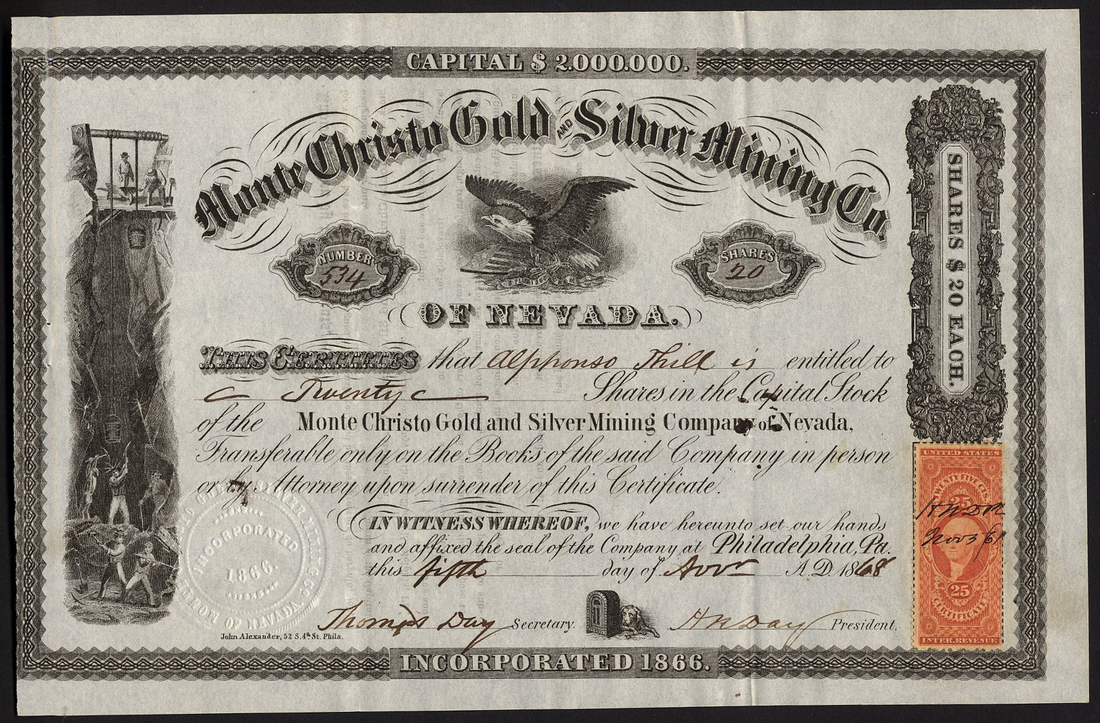 CAPITAL $ 2.000.000.
Monte Christo Gold AND Silver Mining Co.
NUMBER
534
SHARES
20
OF NEVADA.
THIS CERTIFIES that Alphonso Thill is entitled to
Twenty Shares in the Capital Stock
of the Monte Christo Gold and Silver Mining Company of Nevada,
Transferable only on the Books of the said Company in person
or by Attorney upon surrender of this Certificate.
IN WITNESS WHEREOF, we have hereunto set our hands
and affixed the seal of the Company at Philadelphia, Pa.
this fifth day of Novr A.D. 1868
Thomas Day Secretary. H N Day President.
John Alexander, 52 S. 4th St. Phila.
INCORPORATED 1866.
SHARES $ 20 EACH.
UNITED STATES
25
H N Day
Nov 5 68
25
CERTIFICATE
INTER. REVENUE
INCORPORATED
1866.